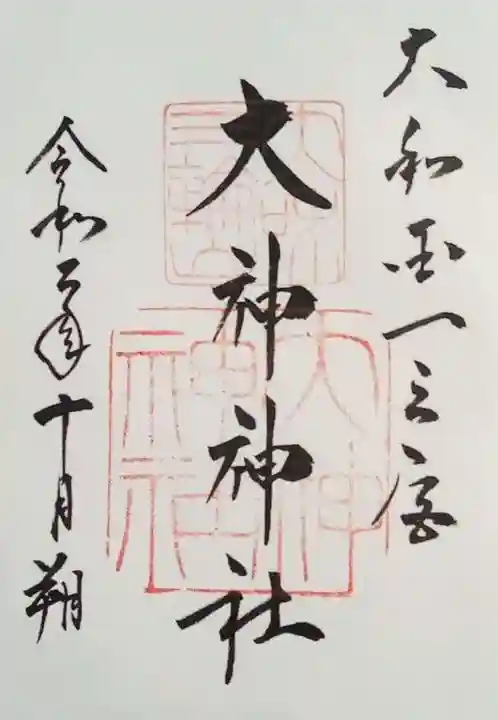 大和国一之宮
大神神社
令和二年十月朔
大神神社